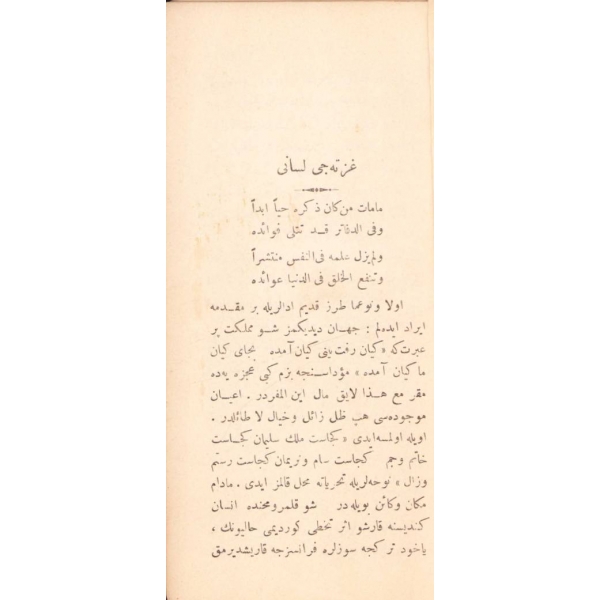 غزته‌جی لسانی
مامات من كان ذكره حیاً ابداً
وفی الدفاتر قد تتلی فوائده
ولم یزل علمه فی النفس منتشراً
وتنفع الخلق فی الدنیا عوائده
اولا ونوعما طرز قدیم ادالریله بر مقدمه
ایراد ایده‌لم : جهان دیدیكمز شو مملكت پر
عبرت كه « كیان رفت بنی كیان آمده بجای كیان
ما كیان آمده » مؤداسنجه بزم كبی عجزه یه‌ده
مقر مع هذا لایق مال این المفردر . اعیان
موجوده‌سی هب ظل زائل وخیال لا طائلدر .
اویله اولمه‌ایدی « كجاست ملك سلیمان كجاست
خاتم وجم كجاست سام ونریمان كجاست رستم
وزال » نوحه‌لریله تحریاته محل قالمز ایدی . مادام
مكان وكائن بویله‌در شو قلمرو محنده انسان
كندیسنه قارشو اثر تخطی كوردیمی حالیونك ،
یاخود تركجه سوزلره فرانسزجه قاریشدیرمق